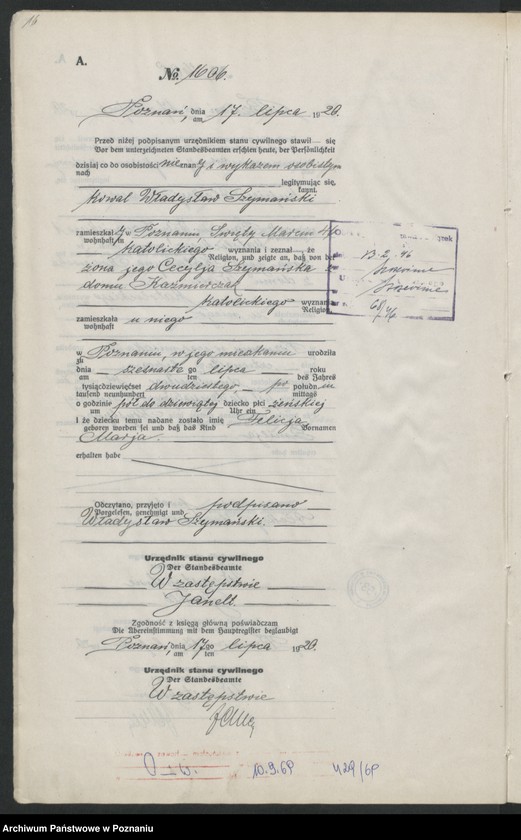 16
A.
No. 1606.
Poznań, dnia 17. lipca 1920.
am
Przed niżej podpisanym urzędnikiem stanu cywilnego stawił — się
Vor dem unterzeichneten Standesbeamten erschien heute, der Persönlichkeit
dzisiaj co do osobistości nieznany i wykazem osobistym
nach
legitymując się,
kannt,
kowal Władysław Szymański
zamieszkały w Poznaniu, Święty Marcin
wohnhaft in
katolickiego wyznania i zeznał — że
Religion, und zeigte an, daß von der
żona jego Cecylja Szymańska z
domu Kaźmierczak
katolickiego wyznania
Religion,
zamieszkała u niego
wohnhaft
w Poznaniu, w jego mieszkaniu urodziła
zu
dnia szesnastego lipca roku
am ten des Jahres
tysiącdziewięćset dwudziestego — po południu
tausend neunhundert mittags
o godzinie pół do dziewiątej dziecko płci żeńskiej
um Uhr ein
i że dziecku temu nadane zostało imię Felicja
geboren worden sei und daß das Kind Vornamen
Marja.
erhalten habe
Odczytano, przyjęto i podpisano
Vorgelesen, genehmigt und
Władysław Szymański.
Urzędnik stanu cywilnego
Der Standesbeamte
W zastępstwie
Janell.
Zgodność z księgą główną poświadczam
Die Übereinstimmung mit dem Hauptregister beglaubigt
Poznań, dnia 17go lipca 1920.
am ten
Urzędnik stanu cywilnego
Der Standesbeamte
W zastępstwie
10.9.69 429/69
Archiwum Państwowe w Poznaniu